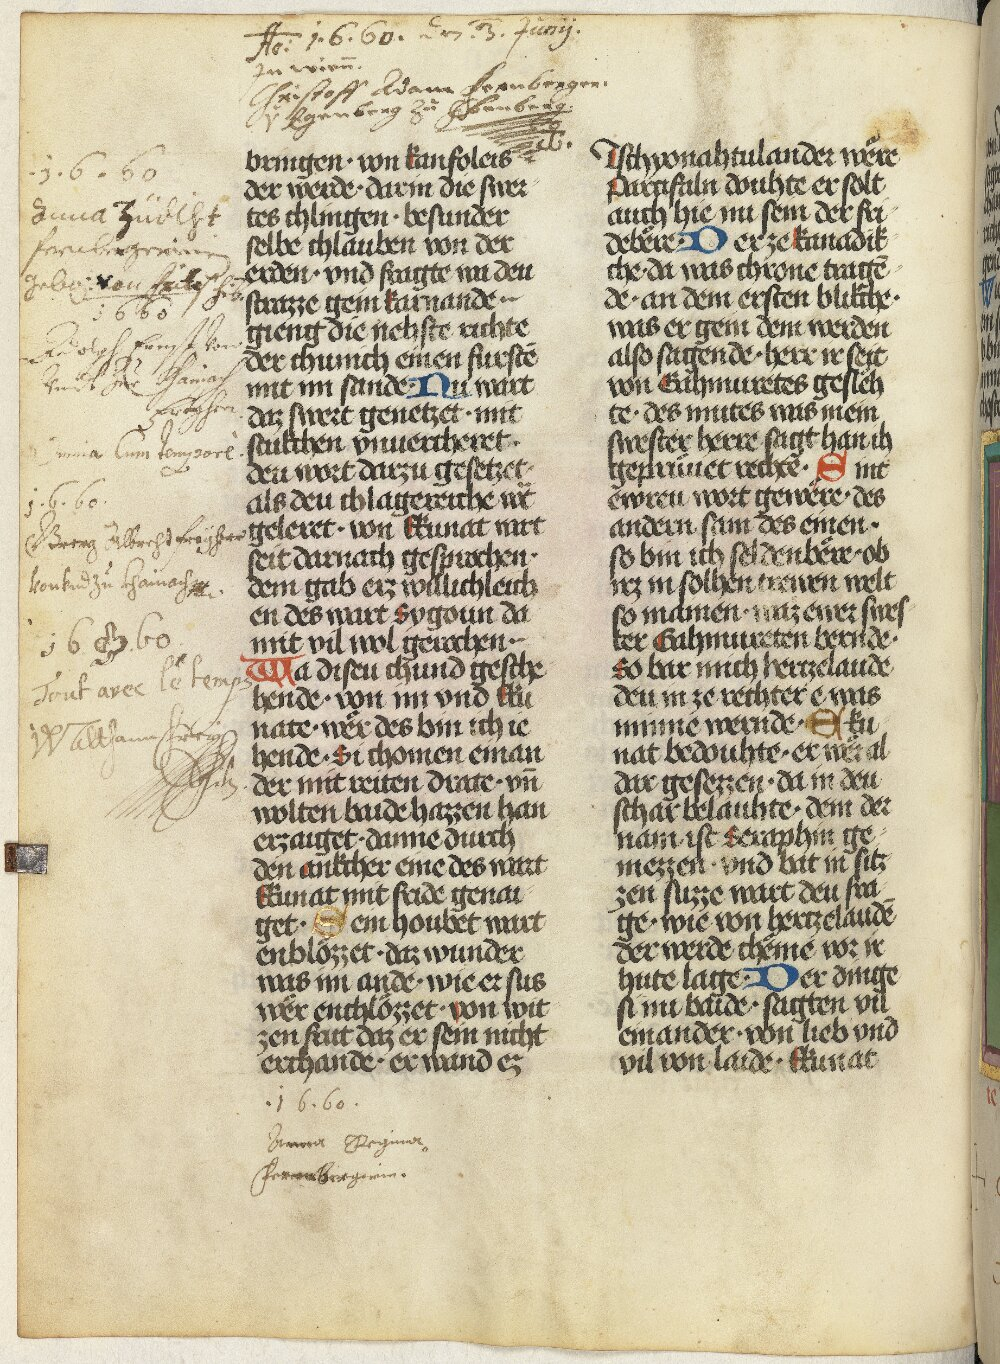 Ao: 1.6.60. den 3. Junij.
In wienn.
Christoff Adam Fernberger
v Egenberg zu
1.6.60
Anna
1660
Rudolph Ernst von
omnia Cum tempore
1.6.60.
Georg Albrecht
von und zu
16 60
Tout avec le temps
1660.
Anna Regina
Fernbergerin.
bringen· von kanfoleis
der werde· darin die swer
tes chlingen· besunder
selbe chlauben von der
erden· vnd fragte wa deu
strazze gein karnande·
gieng die nehste richte
der chunich einen furstē
mit im sande· Nu wart
daz swert genetzet· mit
stukchen vnuercheret·
deu wort darzu gesetzet·
als deu chlagereiche
geleret· von Ekunat wirt
seit darnach gesprochen·
dem gab erz willichleich
en des wart Sygoun da
mit vil wol gerochen·
Wa diseu chund gesche
hende· von im vnd Eku
nate· wër des bin ich ie
hende· Si chomen einan
der mit reiten drate· vñ
wolten baide hazzen han
erzaiget· danne durch
den ankher eine des wart
Ekunat mit fride genai
get· Sein houbet wart
enblözzet· daz wunder
was im ande· wie er sus
wër enchlözzet· von wit
zen seit daz er sein nicht
erchande· er wand ez
Tschyonahtulander wëre
Parcifaln douhte er solt
auch hie nu sein der fri
debëre· Der ze kanadik
che· da was chrone tragē
de· an dem ersten blikche·
was er gein dem werden
also sagende· herre ir seit
von Gahmuretes geslëh
te· des mutes was mein
swester herre sagt han ih
geprüuet rechte· Sint
ewreu wort gewëre· des
andern sam des einen·
so bin ich seldenbëre· ob
irz in solhen trewen welt
so mainen· waz ewer swes
ter Gahmureten bernde·
So bar mich hertzelaude
deu in ze rechter e was
minne wernde· Eku
nat bedouhte· er wër al
dar gesezzen· da in deu
schar belauhte· dem der
nam ist Seraphin ge
mezzen· vnd bat in sitz
zen suzze wart deu fra
ge· wie von hertzelaudē
der werde chëme vor ir
hute lage· Der dinge
si nu baide· sagten vil
einander· von lieb vnd
vil von laide· Ekunat